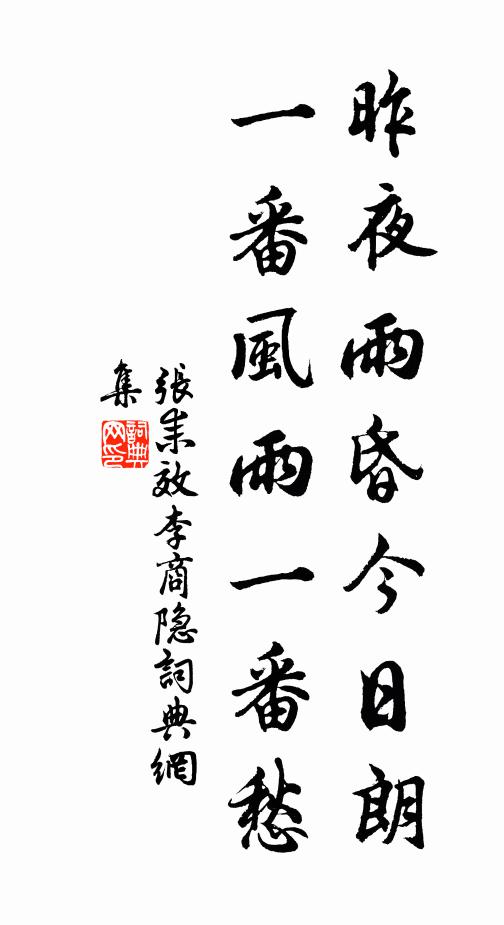 昨夜雨昏今日朗
一番風雨一番愁
張耒效李商隐詞典網
集
詞典网印